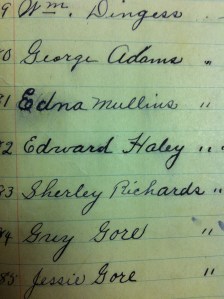 9 Wm. Dingess "
80 George Adams "
81 Edna Mullins "
82 Edward Haley " "
83 Sherley Richards "
84 Guy Gore "
85 Jessie Gore "